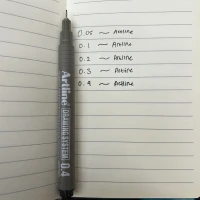 0.05 ~ Artline
0.1 ~ Artline
0.2 ~ Artline
0.3 ~ Artline
0.4 ~ Artline
Artline DRAWING SYSTEM 0.4